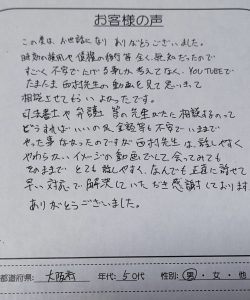 お客様の声
この度は、お世話になり ありがとうございました。
時効の援用や 債権の移行等 全く無知だったので
すごく 不安で たまる事しか 考えてなく、YOUTUBEで
たまたま 西村先生の動画を見て思いきって
相談させてもらい よかったです。
司法書士や 弁護士 等の先生がたに 相談するのって
どうすればいいの及 金額等も不安で いままで
やった事なかったのですが 西村先生は、話しやすく
やわらかいイメージの動画でしして 会ってみても
そのままで とても 話しやすく、なんでも 正直に 話せて
早い対応で 解決していただき 感謝しております
ありがとうございました。
都道府県: 大阪府 年代: 50代 性別: 男・女・他